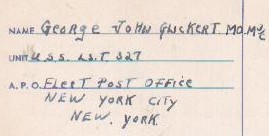 NAME GEORGE JOHN GLICKERT. MO.M.2/C
UNIT U.S.S. LST. 327
A.P.O. FLEET POST OFFICE
NEW YORK CITY
NEW. YORK